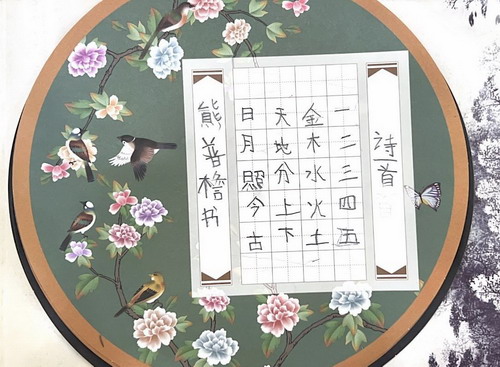 诗一首
一二三四五
金木水火土
天地分上下
日月照今古
熊普檐书